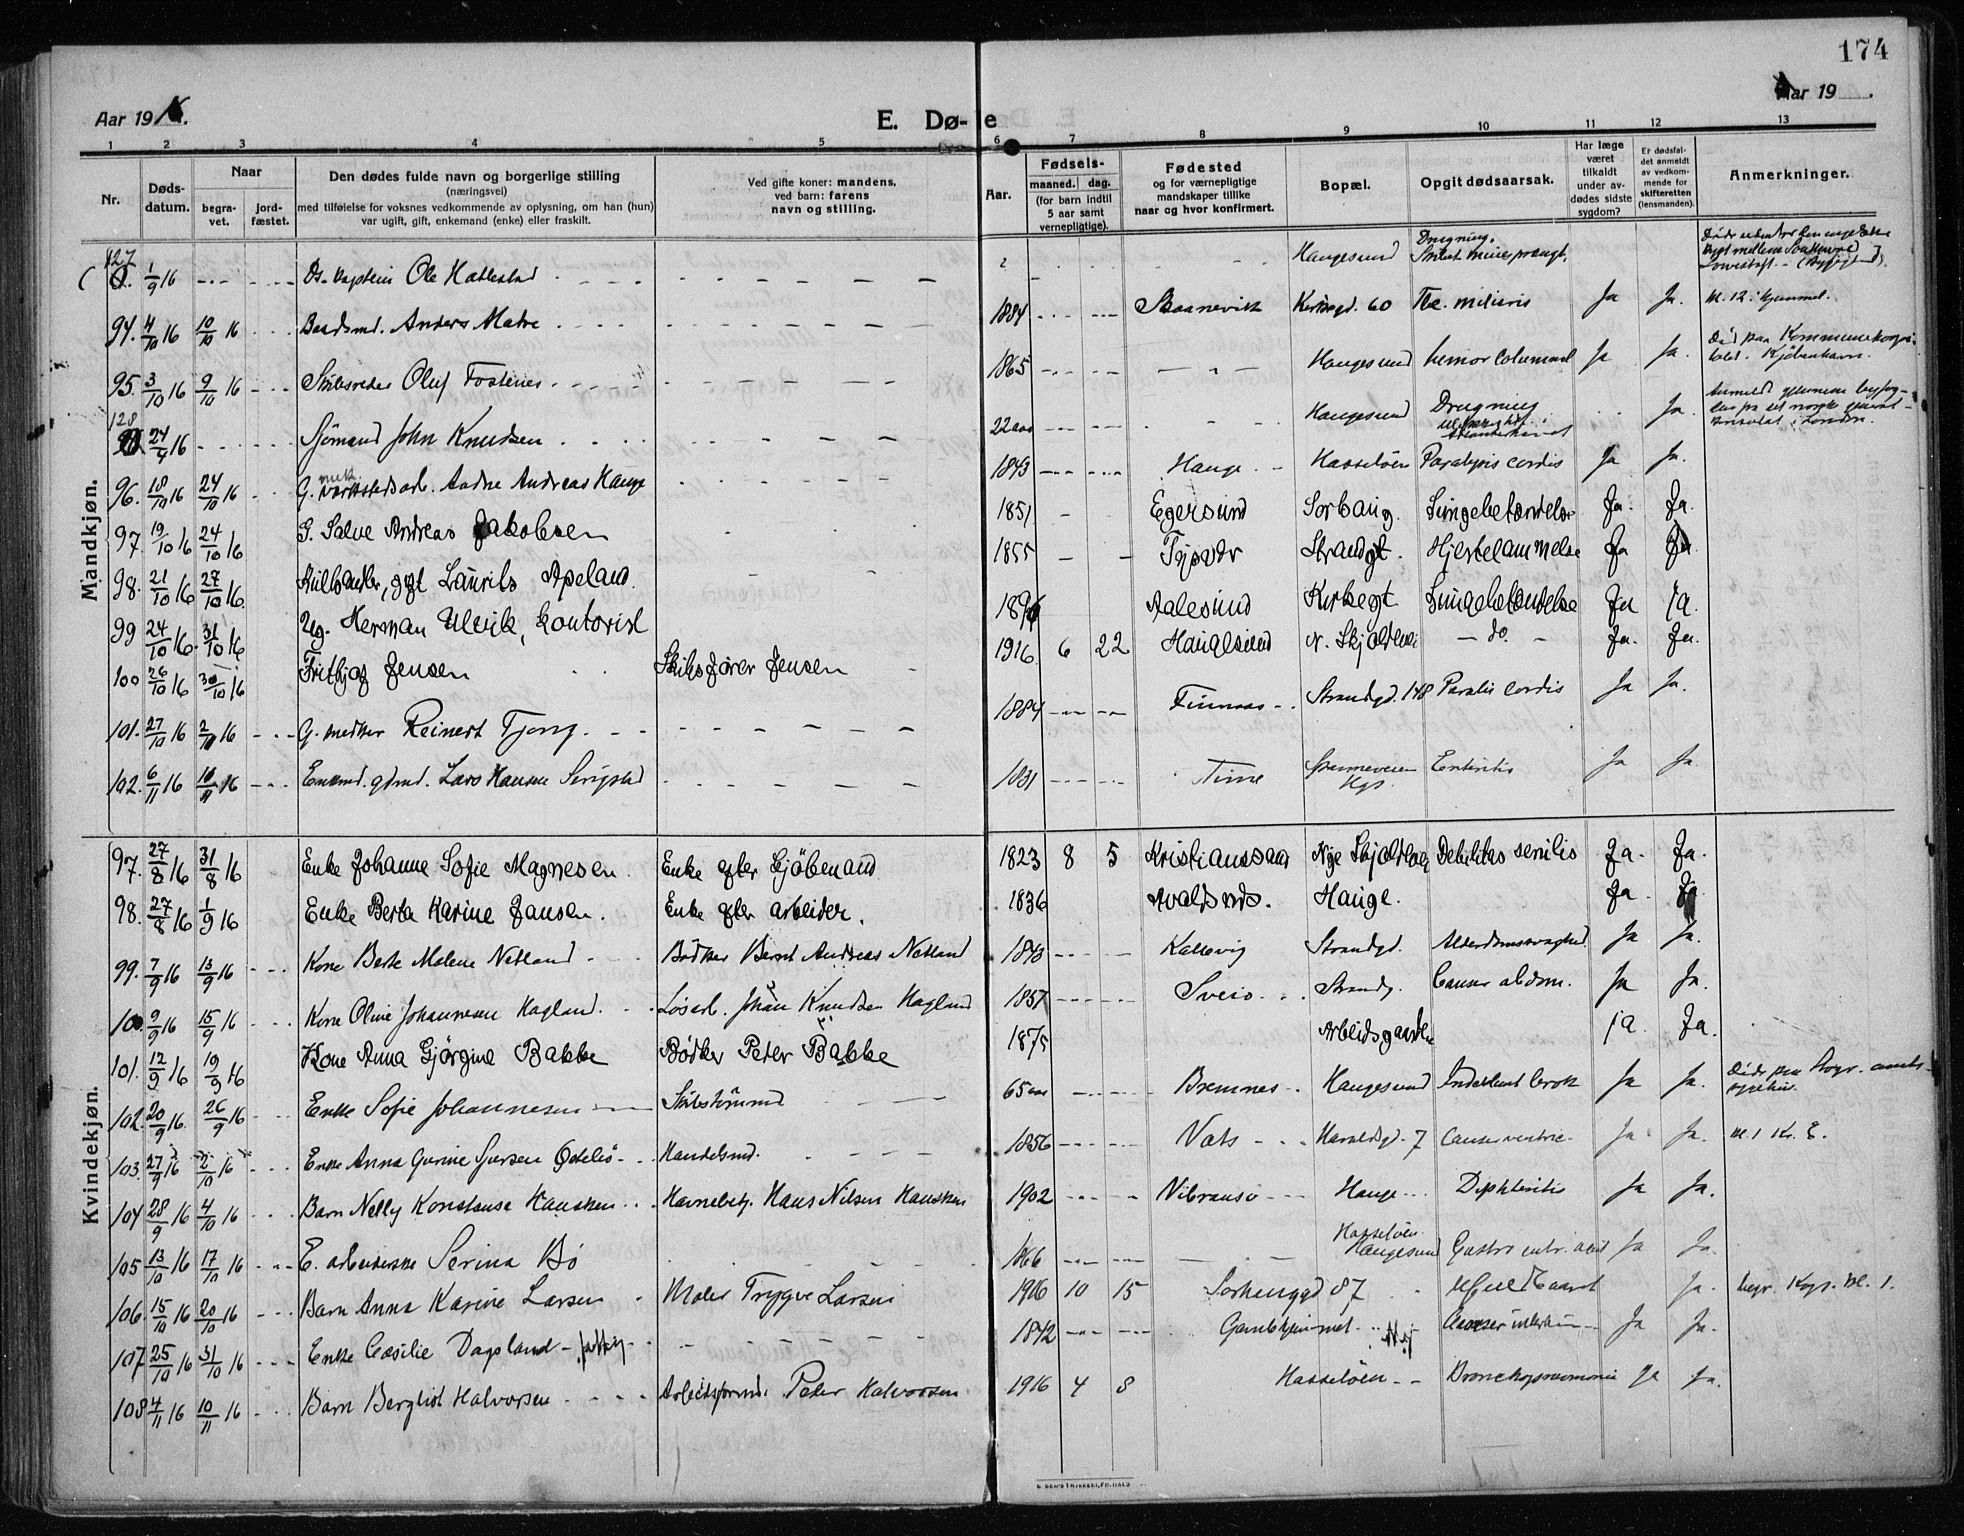 174
Aar 1916.
E. Døde
Aar 19
1 2 3 4 5 6 7 8 9 10 11 12 13
Nr.
Døds-
datum.
Naar
begra-
vet.
jord-
fæstet.
Den dødes fulde navn og borgerlige stilling
(næringsvei)
med tilføielse for voksnes vedkommende av oplysning, om han (hun)
var ugift, gift, enkemand (enke) eller fraskilt.
Ved gifte koner: mandens,
ved barn: farens
navn og stilling.
Aar.
Fødsels-
maaned. dag.
(for barn indtil
5 aar samt
vernepligtige).
Fødested
og for værnepligtige
mandskaper tillike
naar og hvor konfirmert.
Bopæl.
Opgit dødsaarsak.
Har læge
været
tilkaldt
under av-
dødes sidste
sygdom?
Er dødsfal-
det anmeldt
av vedkom-
mende for
skifteretten
(lensmanden).
Anmerkninger.
Mandkjøn.
127 1/9 16 Ds. kaptein Ole Hattestad Haugesund Drugning.
94. 4/10 16 10/10 16 Baadsmd. Anders Matre 1884 Skaanevik Kirkegd. 60 Tbc. miliaris Ja Ja. kl. 12 i hjemmet.
95. 3/10 16 9/10 16 Skibsreder Oluf Tostenes 1865 Haugesund Ja Ja. Død paa Kommunehospi-
talet i Kjøbenhavn.
128 24/9 16 Sjömand John Knudsen 22 aar Haugesund Drugning Ja.
96. 18/10 16 24/10 16 G. mek. værkstedsarb. Andreas Hauge 1843 Hauge Hasseløen Paralysis cordis Ja Ja.
97. 19/10 16 24/10 16 G. Salve Andreas Jakobsen 1851 Egersund Sorhaug. Lungebetændelse Ja. Ja.
98. 21/10 16 27/10 16 Kulhandler, ggt Laurits Apeland 1855 Tysvær Strandgt. Hjertelammelse Ja Ja.
99 24/10 16. 31/10 16 Ug. Herman Ulvik, kontorist Aalesund Kirkegt Lungebetændelse Ja Ja.
100 26/10 16 30/10 16 Fritbjof Jensen Skibsfører Jensen 1916 6 22 Haugesund N. Skjoldvei do Ja. Ja.
101. 27/10 16 2/11 16 G. snedker Reinert Tjong. 1884 Finnaas Strandgd. 148 Paralis cordis Ja Ja.
102. 6/11 16 10/11 16 Enkmd. gdmd. Lars Hansen Serigstad 1831 Time Enteritis Ja Ja.
Kvindekjøn.
97. 27/8 16 31/8 16 Enke Johanne Sofie Magnesen. Enke efter Gjøbmand 1823 8 5 Kristianssand Nye Skjoldvei Debilitas senilis Ja. Ja.
98. 27/8 16 1/9 16 Enke Berta Karine Jansen. Enke efter arbeider. 1836 Avaldsnes. Hauge. Ja. Ja
99. 7/9 16 13/9 16 Kone Berte Malene Netland Bødker Bernt Andreas Netland 1843 Kallevig Strandgd. Alderdomssvaghed Ja Ja.
100 9/9 16 15/9 16 Kone Oline Johannesen Hagland. Løsarb. Johan Knudsen Hagland 1857 Sveio Strandg. Cancer abdom. Ja Ja.
101. 12/9 16 19/9 16 Kone Anna Gjørgine Bakke Bødker Peter Bakke 1875 Arbeidsgaarden ja. Ja.
102. 20/9 16. 26/9 16 Enke Sofie Johannesen Skibstømmd 65 aar Bremnes Haugesund Indeklemt brok Ja Ja.
103. 27/9 16 2/10 16 Enke Anna Gurine Handelsmd. 1856 Vats Haraldsgd. 7 Cancer ventric. Ja Ja. kl. 1 Kr. E.
104 28/9 16 4/10 16 Barn Nelly Konstanse Hansken Havnebetj. Hans Nilsen Hansken 1902 Vibransø Hauge Diphteritis Ja Ja.
105 13/10 16 17/10 16 E. arbeiderske Serina Bö 1866 Hasseløen Haugesund Ja Ja.
106. 15/10 16 20/10 16 Barn Anna Karine Larsen Maler Trygve Larsen 1916 10 15 Sorhauggd 87 Ja.
107 25/10 16 31/10 16 Enke Cæsilie Dagsland - fattig 1842 Gamlehjemmet Ja Ja.
108 4/11 16 10/11 16 Barn Bergliot Halvorsen Arbeidsformd. Peter Halvorsen 1916 4 8 Hasseløen Bronchopneumonia Ja Ja.